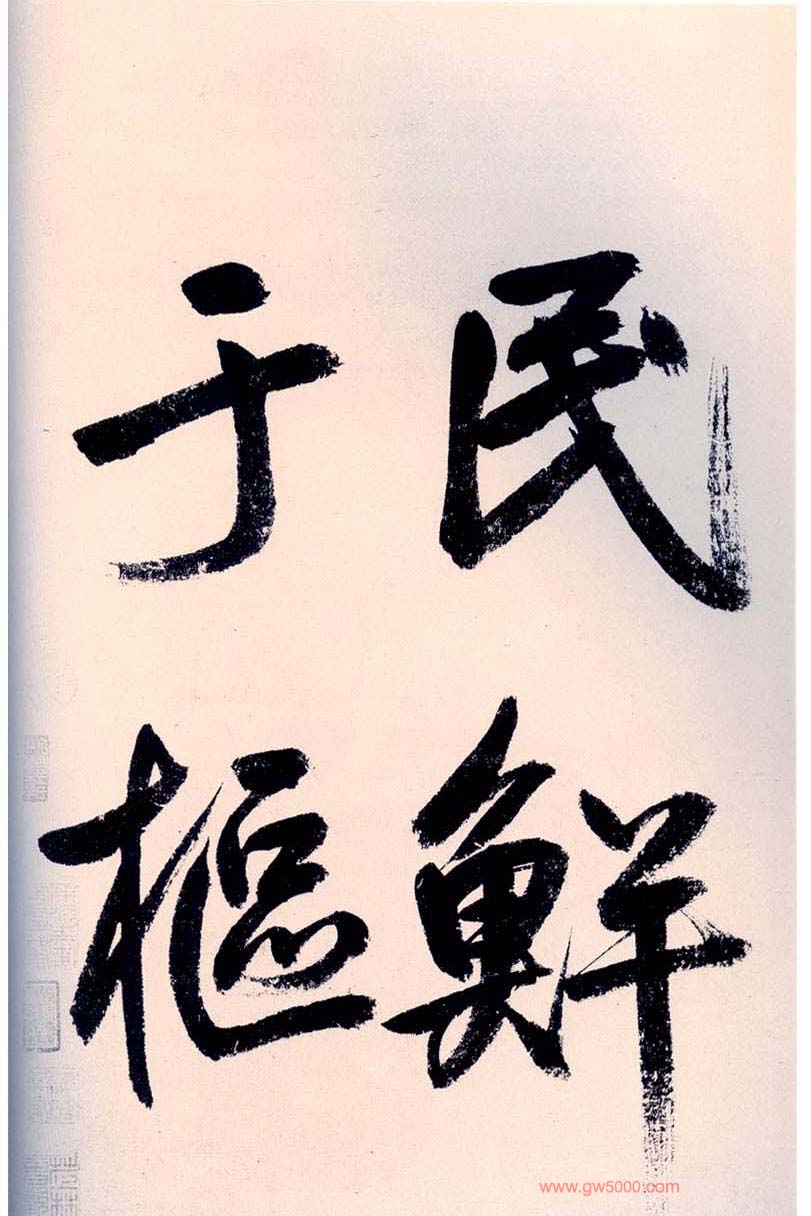 民鮮
于樞
www.gw5000.com